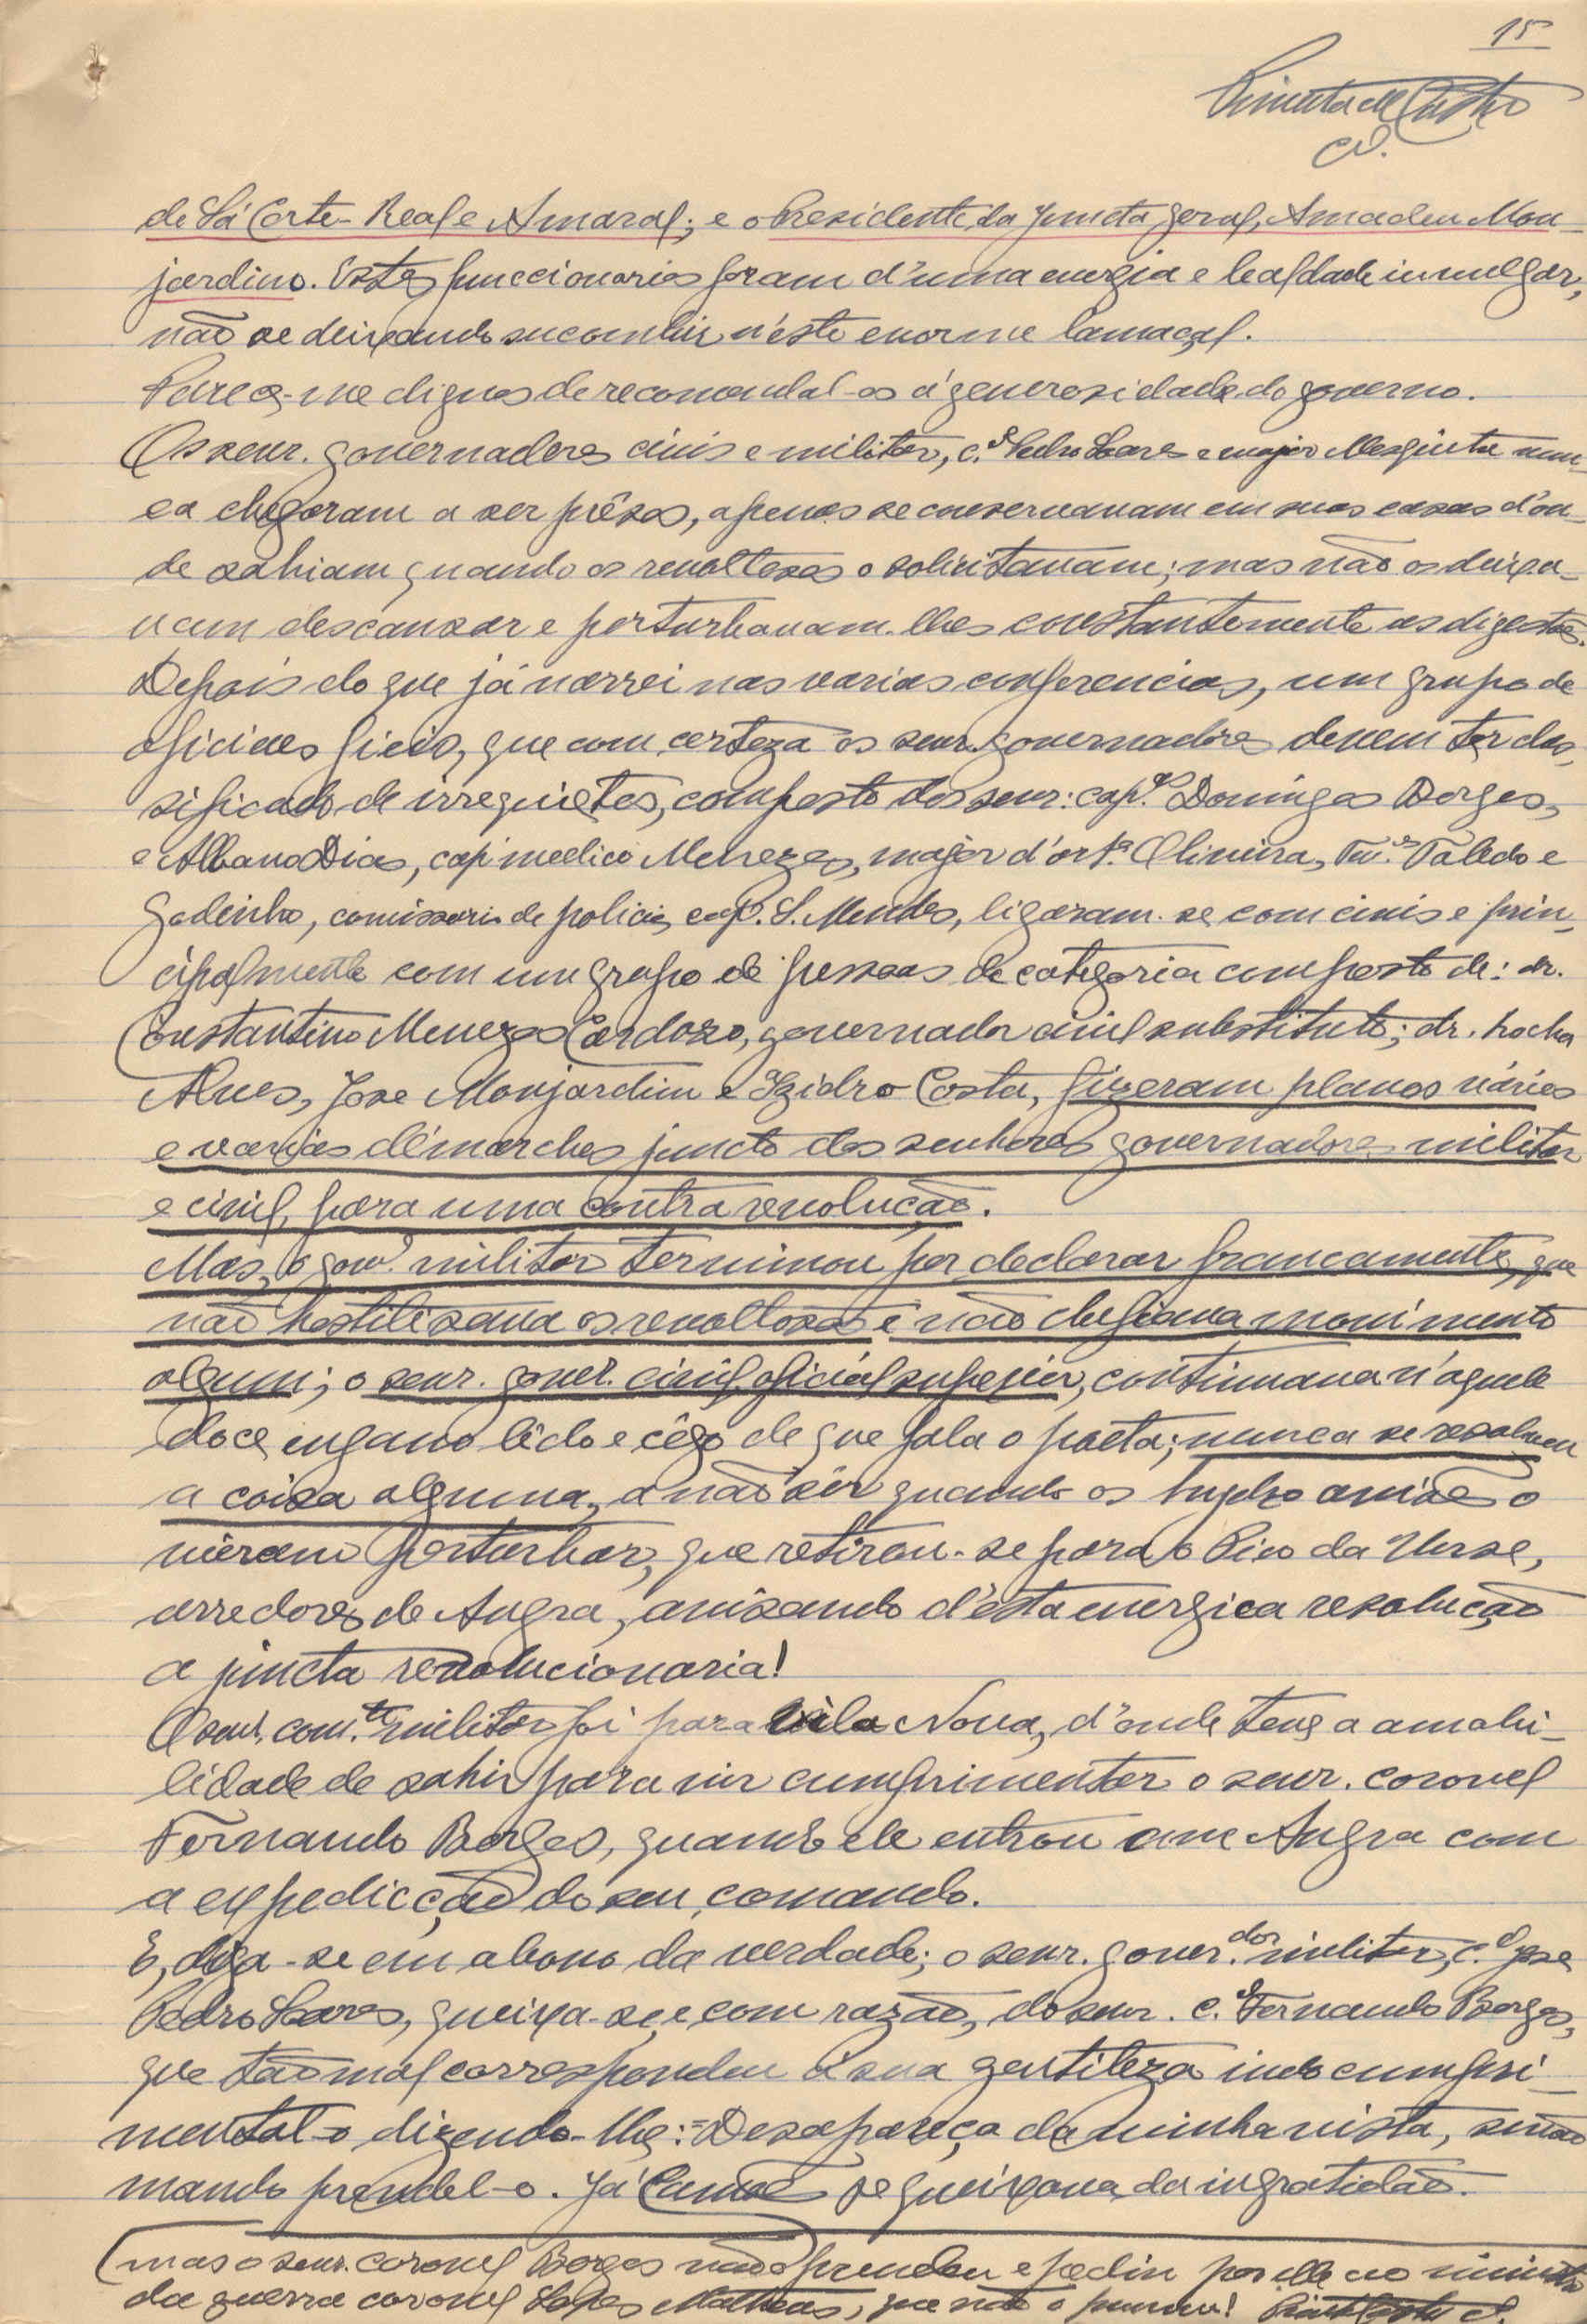 15
Pimenta de Castro
de Sá Corte-Real e Amaral; e o Presidente da Juncta geral, Amadeu Mon-
jardino. Estes funccionarios foram d'uma energia e lealdade invulgar,
não se deixando sucombir n'este enorme lamaçal.
Parece-me dignos de recomendal-os á generosidade do governo.
Os senr. governadores civis e militar, c.el Pedro Soares e major Mesquita nun-
ca chegaram a ser prêsos, apenas se conservavam em suas casas d'on-
de sahiam quando os revoltosos o solicitavam; mas não os deixa-
vam descansar e perturbavam-lhes constantemente as digestões.
Depois do que já narrei nas varias conferencias, um grupo de
oficiaes fieis, que com certeza os senr. governadores devem ter clas-
sificado de irrequietos, composto dos senr: cap.es Domingos Borges,
e Albano Dias, cap. medico Menezes, major d'art.a Oliveira, Ten.es Toledo e
Godinho, comissario de policia, cap. S. Mendes, ligaram-se com civis e prin-
cipalmente com um grupo de pessoas de categoria composto de: dr.
Constantino Menezes Cardozo, governador civil substituto; dr. Rocha
Alves, José Monjardim e Izidro Costa, fizeram planos vários
e varias démarches juncto dos senhores governadores militar
e civil, para uma contra revolução.
Mas, o gov.or militar terminou por declarar francamente, que
não hostilisava os revoltosos e não chefiava movimento
algum; o senr. gover. civil, oficial superior, continuava n'aquele
doce engano lêdo e cêgo de que fala o poeta; nunca se resolveu
a coisa alguma, a não sêr quando os hydro aviões o
vieram perturbar, que retirou-se para o Pico da Urze,
arredores de Angra, avisando d'esta energica resolução
a juncta revolucionaria!
O senr. com.te militar foi para Vila Nova, d'onde teve a amabi-
lidade de sahir para vir cumprimentar o senr. coronel
Fernando Borges, quando ele entrou em Angra com
a expedicção do seu comando.
E, diga-se em abono da verdade; o senr. gover.dor militar, c.el José
Pedro Soares, queixa-se, e com razão, do senr. c.el Fernando Borges,
que tão mal correspondeu á sua gentileza indo cumpri-
mental-o dizendo-lhe: =Desapareça da minha vista, senão
mando prendel-o. Já Camões se queixava da ingratidão.
mas o senr. coronel Borges não o prendeu e pediu por elle ao ministro
da guerra coronel Lopes Matheus, que não o punisse!